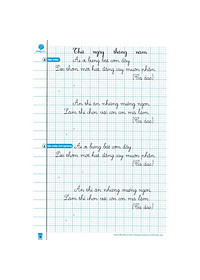 Thứ ngày tháng năm
Ai ơi bưng bát cơm đầy
Dẻo thơm một hạt đắng cay muôn phần.
(Ca dao)
Ăn thì ăn những miếng ngon
Làm thì chọn việc cỏn con mà làm.
(Ca dao)
Ai ơi bưng bát cơm đầy
Dẻo thơm một hạt đắng cay muôn phần.
(Ca dao)
Ăn thì ăn những miếng ngon
Làm thì chọn việc cỏn con mà làm.
(Ca dao)